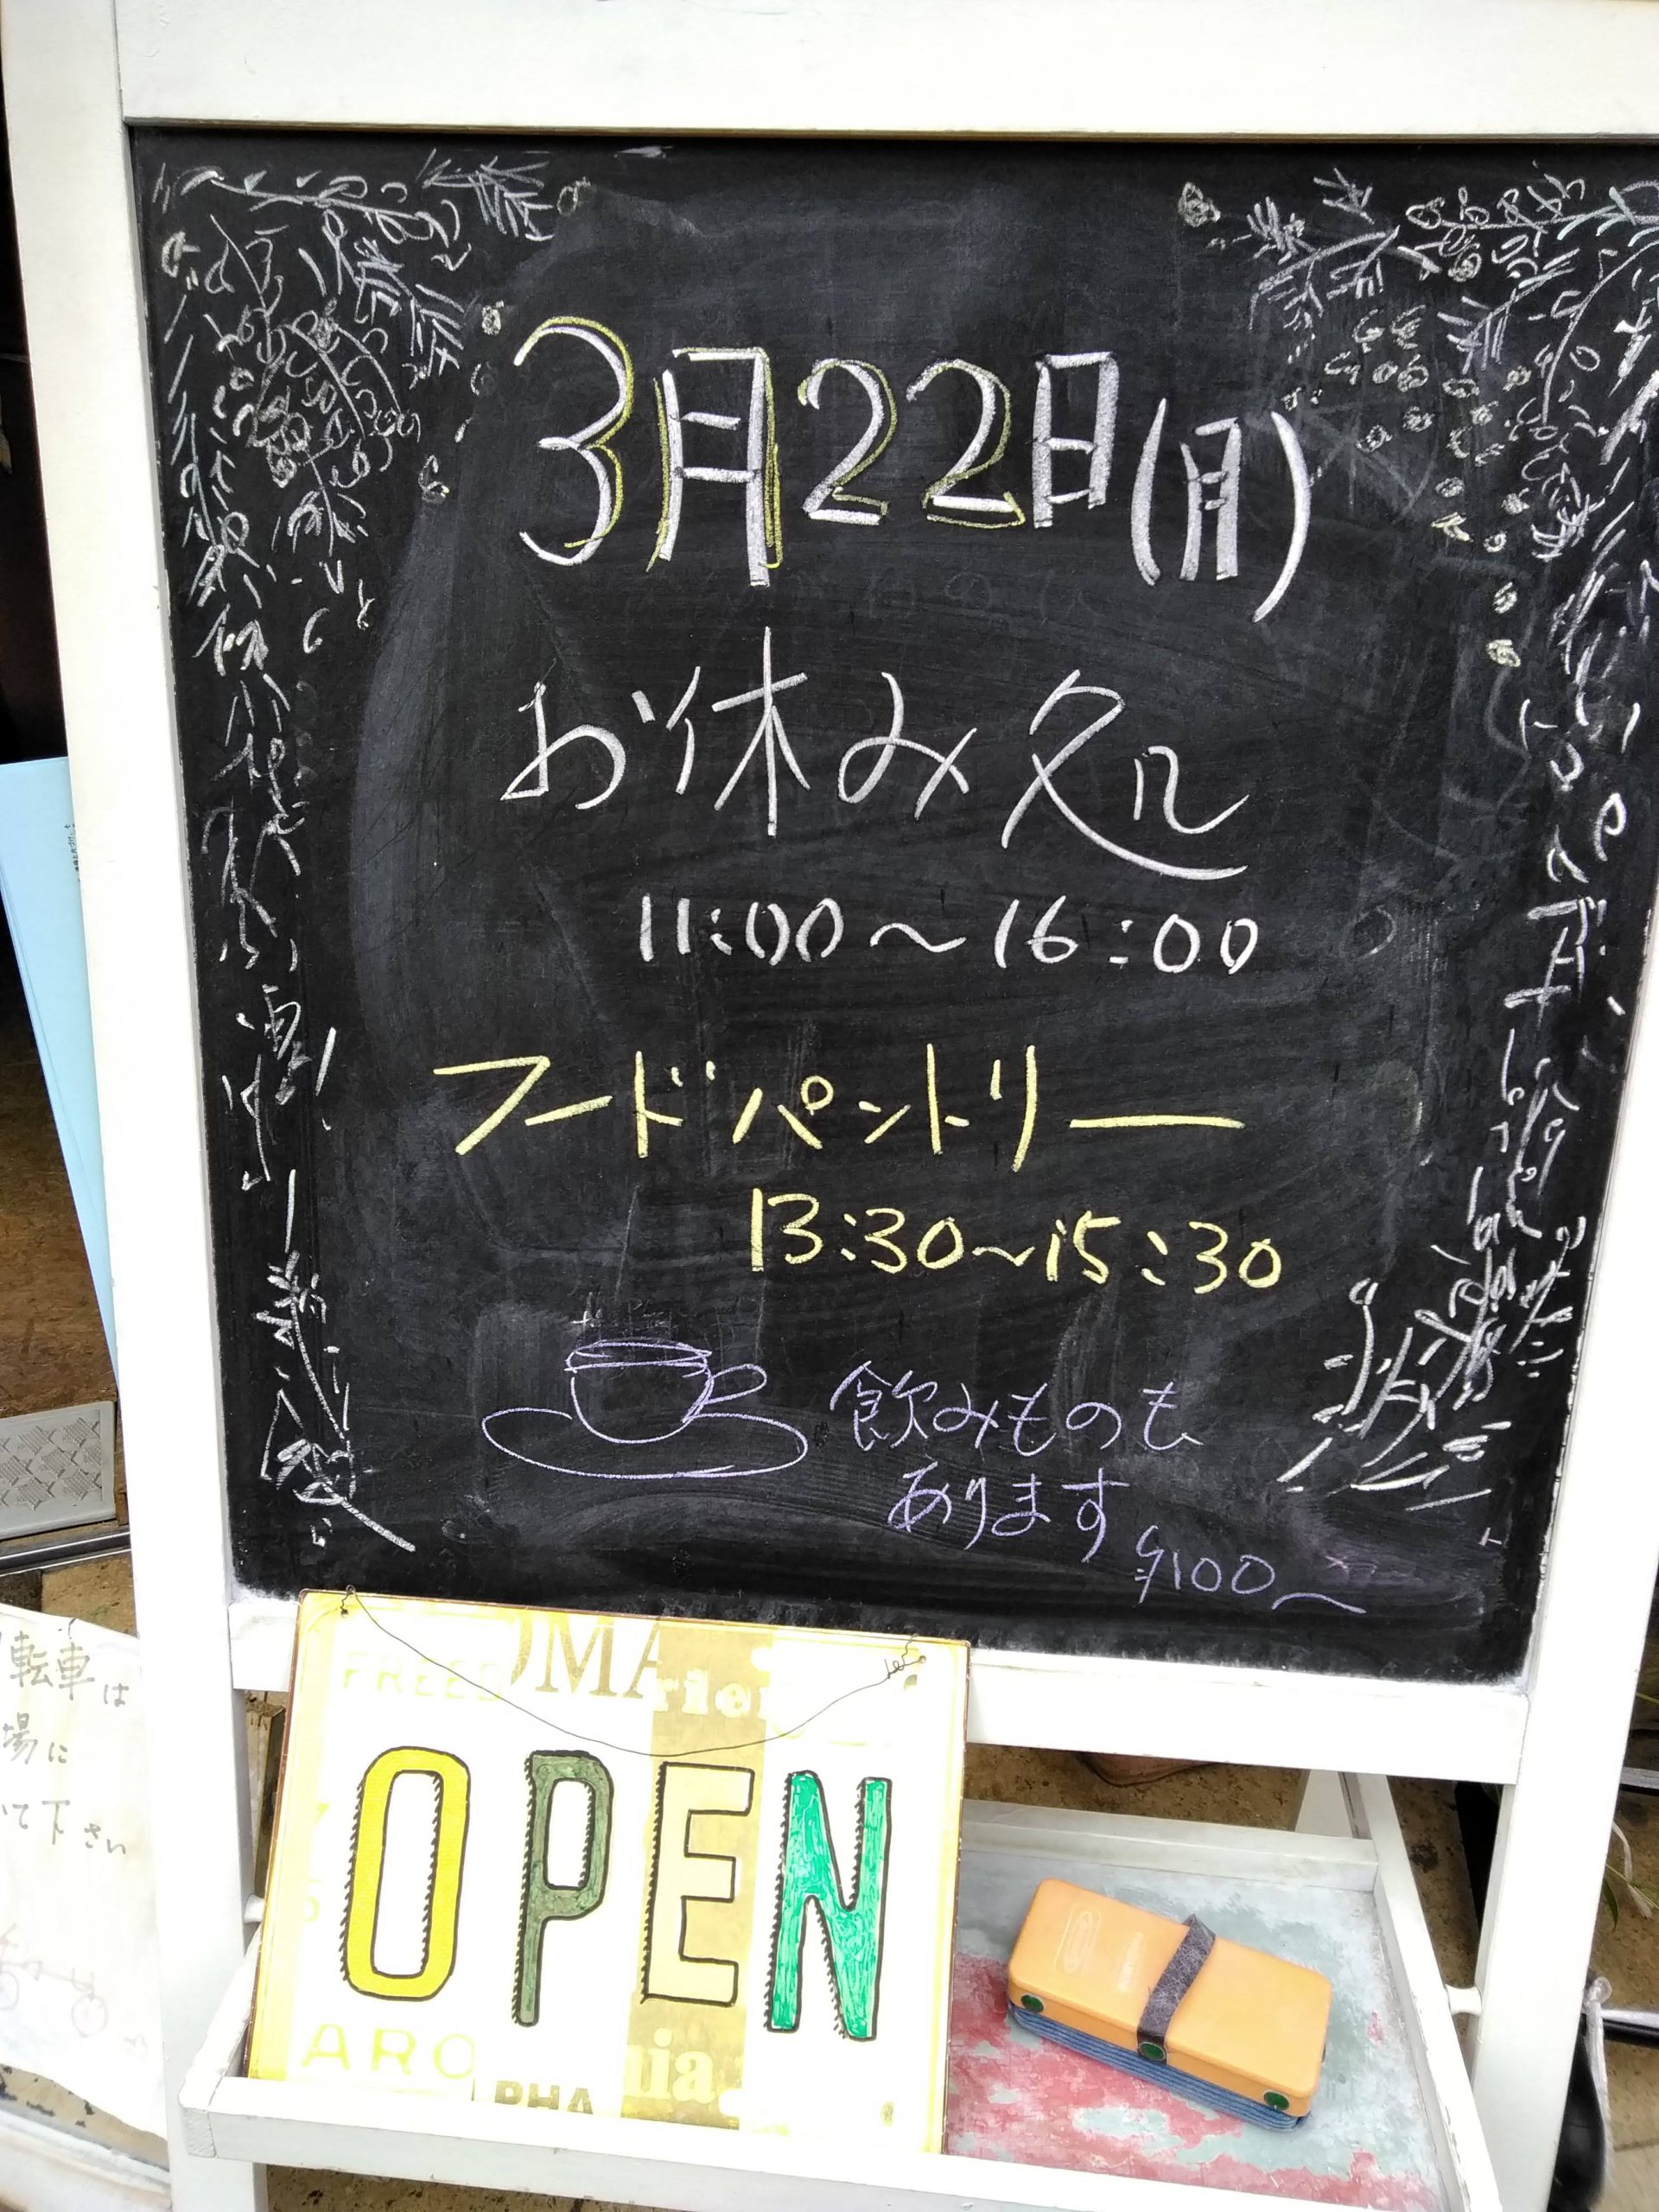 3月22日(月)
お休み処
11:00〜16:00
フードパントリー
13:30〜15:30
飲みものも
あります
¥100〜
FREED
OMA
rie
OPEN
ARO
PHA
uia
転車は
場に
て下さい